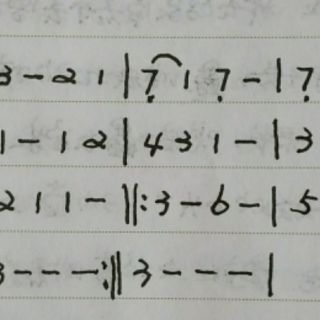 3 - 2 1 | 7̣ 1 7̣ - | 7̣
1 - 1 2 | 4 3 1 - | 3
2 1 1 - ‖: 3 - 6 - | 5
3 - - - :‖ 3 - - - |